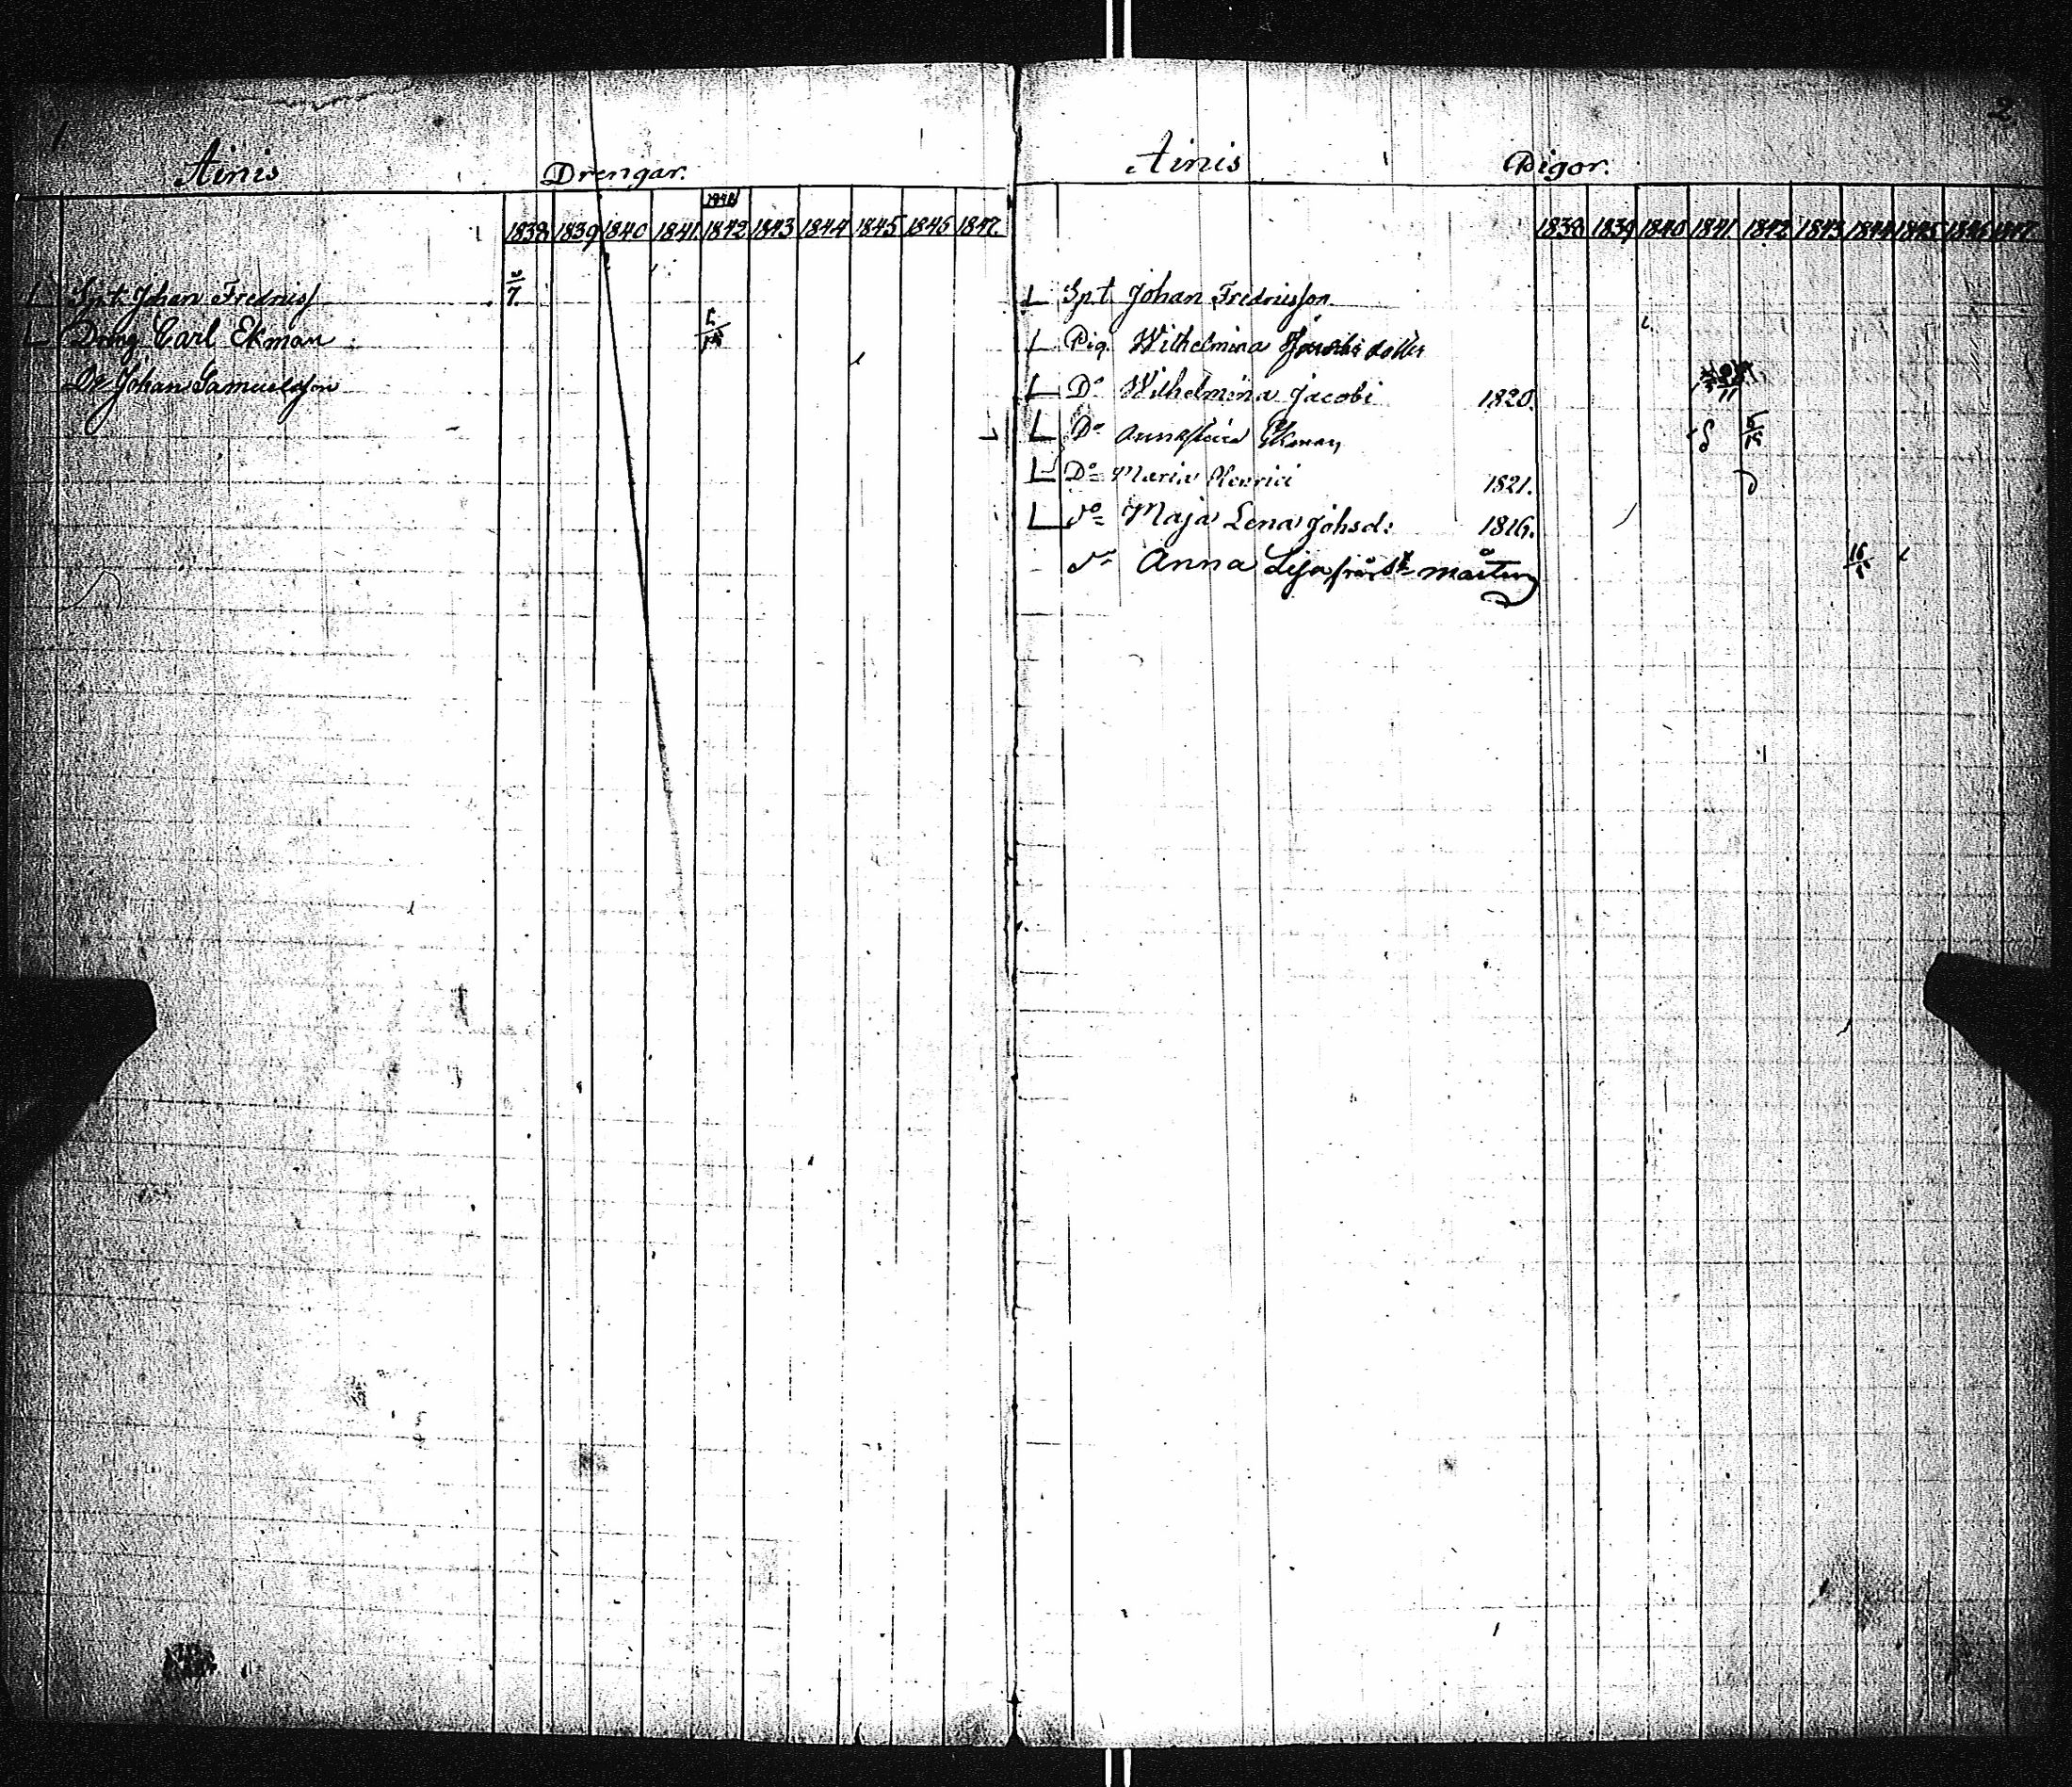 1
Ainis Drengar.
1838 1839 1840 1841 1842 1843 1844 1845 1846 1847.
L Spt. Johan Fredriss
L Dreng Carl Ekman
Do Johan Samuelsson
2
Ainis Pigor.
1838 1839 1840 1841 1842 1843 1844 1845 1846 1847
L Spt Johan Fredricsson
L Pig. Wilhelmina dotter
L Do Wilhelmina Jacobi 1820.
L Do Ekman
L Do Maria Henrici 1821.
L do Maja Lena Johsd: 1816.
do Anna Lisa från St Mårtens 16